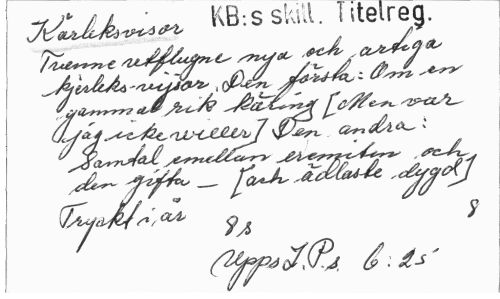 KB:s skill. Titelreg.
Kärleksvisor
Tvenne utflugne nya och artiga
kjerleks-vijsor. Den första: Om en
gammal rik käring [Men var
jag icke willer] Den andra:
Samtal emellan eremiten och
den gifta - [ach ädlaste dygd]
Tryckt i, år
8s 8
Upps J.P.s. 6:25